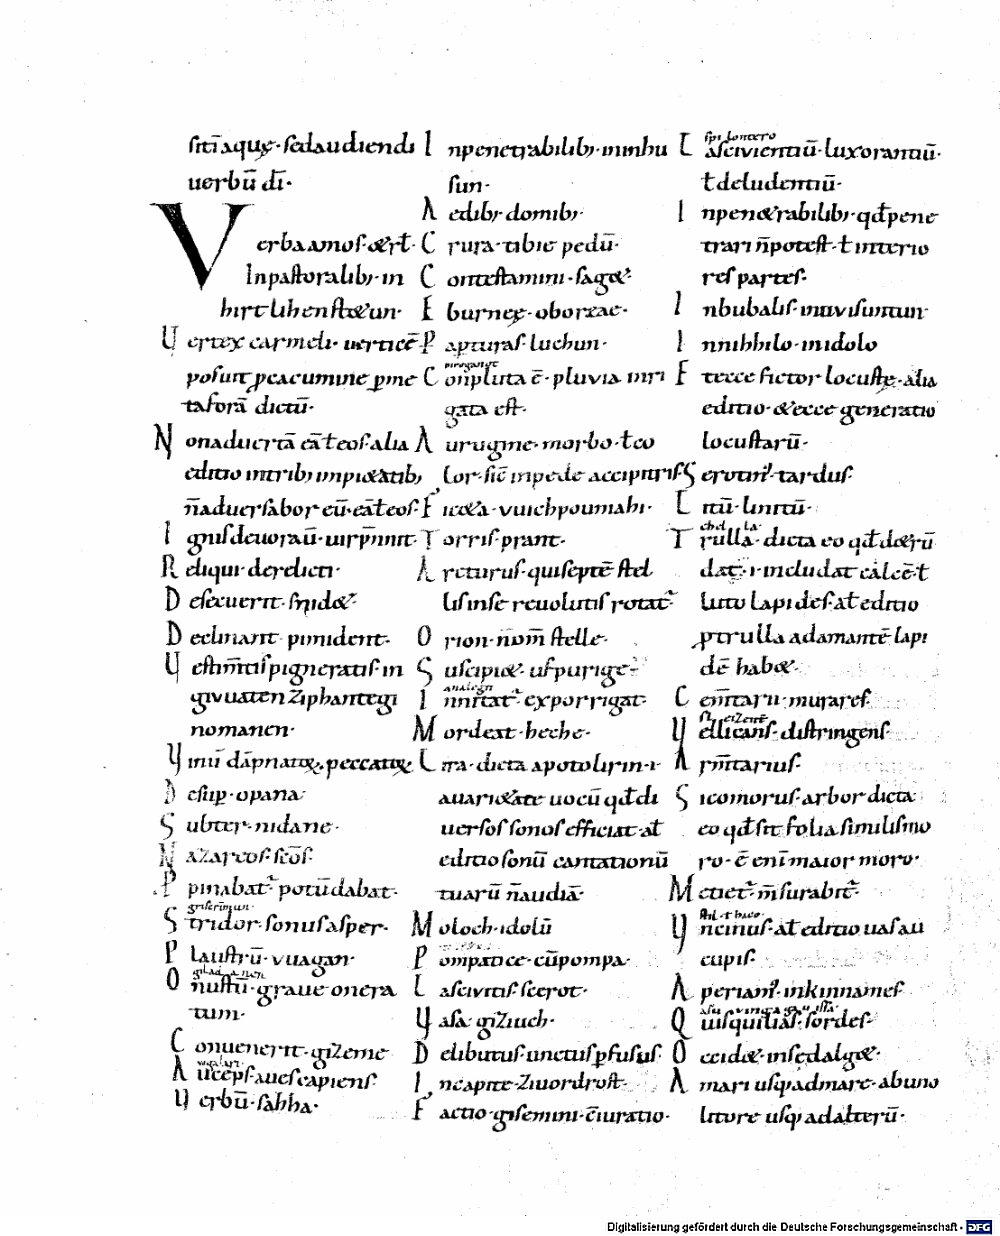 sitī aquę · sed audiendi
uerbū dī ·
Verba amos · & rł ·
In pastoralib; in
hirtlihen stætun ·
Vertex carmeli · uerticē
posuit p cacumine p me
taforā dictū ·
Non aduertā eā ł eos · alia
editio in trib; impi&atib;
n̄ aduersabor eū · eā ł eos ·
Ignis deuoraū · uirp̄nnit ·
Reliqui derdicti ·
Desecuerit · snid& ·
Declinant · pimident ·
Vestim̄tis pigneratis · in
givuaten ziphantegi
nomanen ·
Vinū dāpnatoꝝ · peccatoꝝ
Desup · opana ·
Subter · nidane ·
Nazareos · scōs ·
Ppinabat · potū dabat ·
griscrimun ·
Stridor · sonus asper ·
Plaustrū · vuagan ·
giladanen
Onustū · graue onera
tum ·
Conuenerit · gizeme
Auceps · aues capiens
Verbū · sahha ·
Inpenetrabilib; · in nihu
sun ·
Aedib; · domib; ·
Crura · tibie pedū ·
Contestamini · sag& ·
Eburneę · oboreae ·
Capturas · luchun ·
piregangt
Conpluta ē · pluvia inri
gata est ·
Aurugine · morbo · ł co
lor · sic̄ in pede accipitris
Fic&a · vuichpoumahi ·
Torris · prant ·
Arcturus · qui septē stel
lis in se reuolutis rotat̄
Orion · nom̄ stelle ·
Suscipi& ·
Innitat̄ · exporrigat ·
Mordeat · heche ·
Lira · dicta apo tolirin · i
a uari&ate uocū qd di
uersos sonos efficiat · at
editio sonū cantationū
tuarū n̄ audiā ·
Moloch · idolū
Pompatice · cū pompa ·
Lasciuitis · scerot ·
Vasa · giziuch ·
Delibutus · unctus pfusus ·
In capite · zi uordrost ·
Factio · gisemini · c̄iuratio ·
spilontero
Lascivientiū · luxorantiū ·
ł deludentiū ·
Inpen&rabilib; · qd pene
trari n̄ potest · ł interio
res partes ·
In bubalis · in uvisuntun ·
In nihhilo · in idolo
Et ecce fictor locustę · alia
editio · & ecce generatio
locustarū ·
Serotin' · tardus ·
Litū · linitū ·
chella ·
Trulla · dicta eo qd d&rū
dat · i · includat calcē · ł
luto lapides · at editio
p trulla adamantē lapi
dē hab& ·
Cem̄tarii · murares
Vellicans · distringens ·
Arm̄tarius ·
Sicomorus · arbor dicta
eo qd sit folia similis mo
ro · ē enī maior moro ·
Metiet̄ · m̄surabit̄ ·
Vncinus · at editio uas au
cupis ·
Aperiant · inkinnames
Quisquilias · sordes ·
Occid& · in sedalg& ·
A mari usq; ad mare · ab uno
litore usq; ad alterū ·
Digitalisierung gefördert durch die Deutsche Forschungsgemeinschaft · DFG